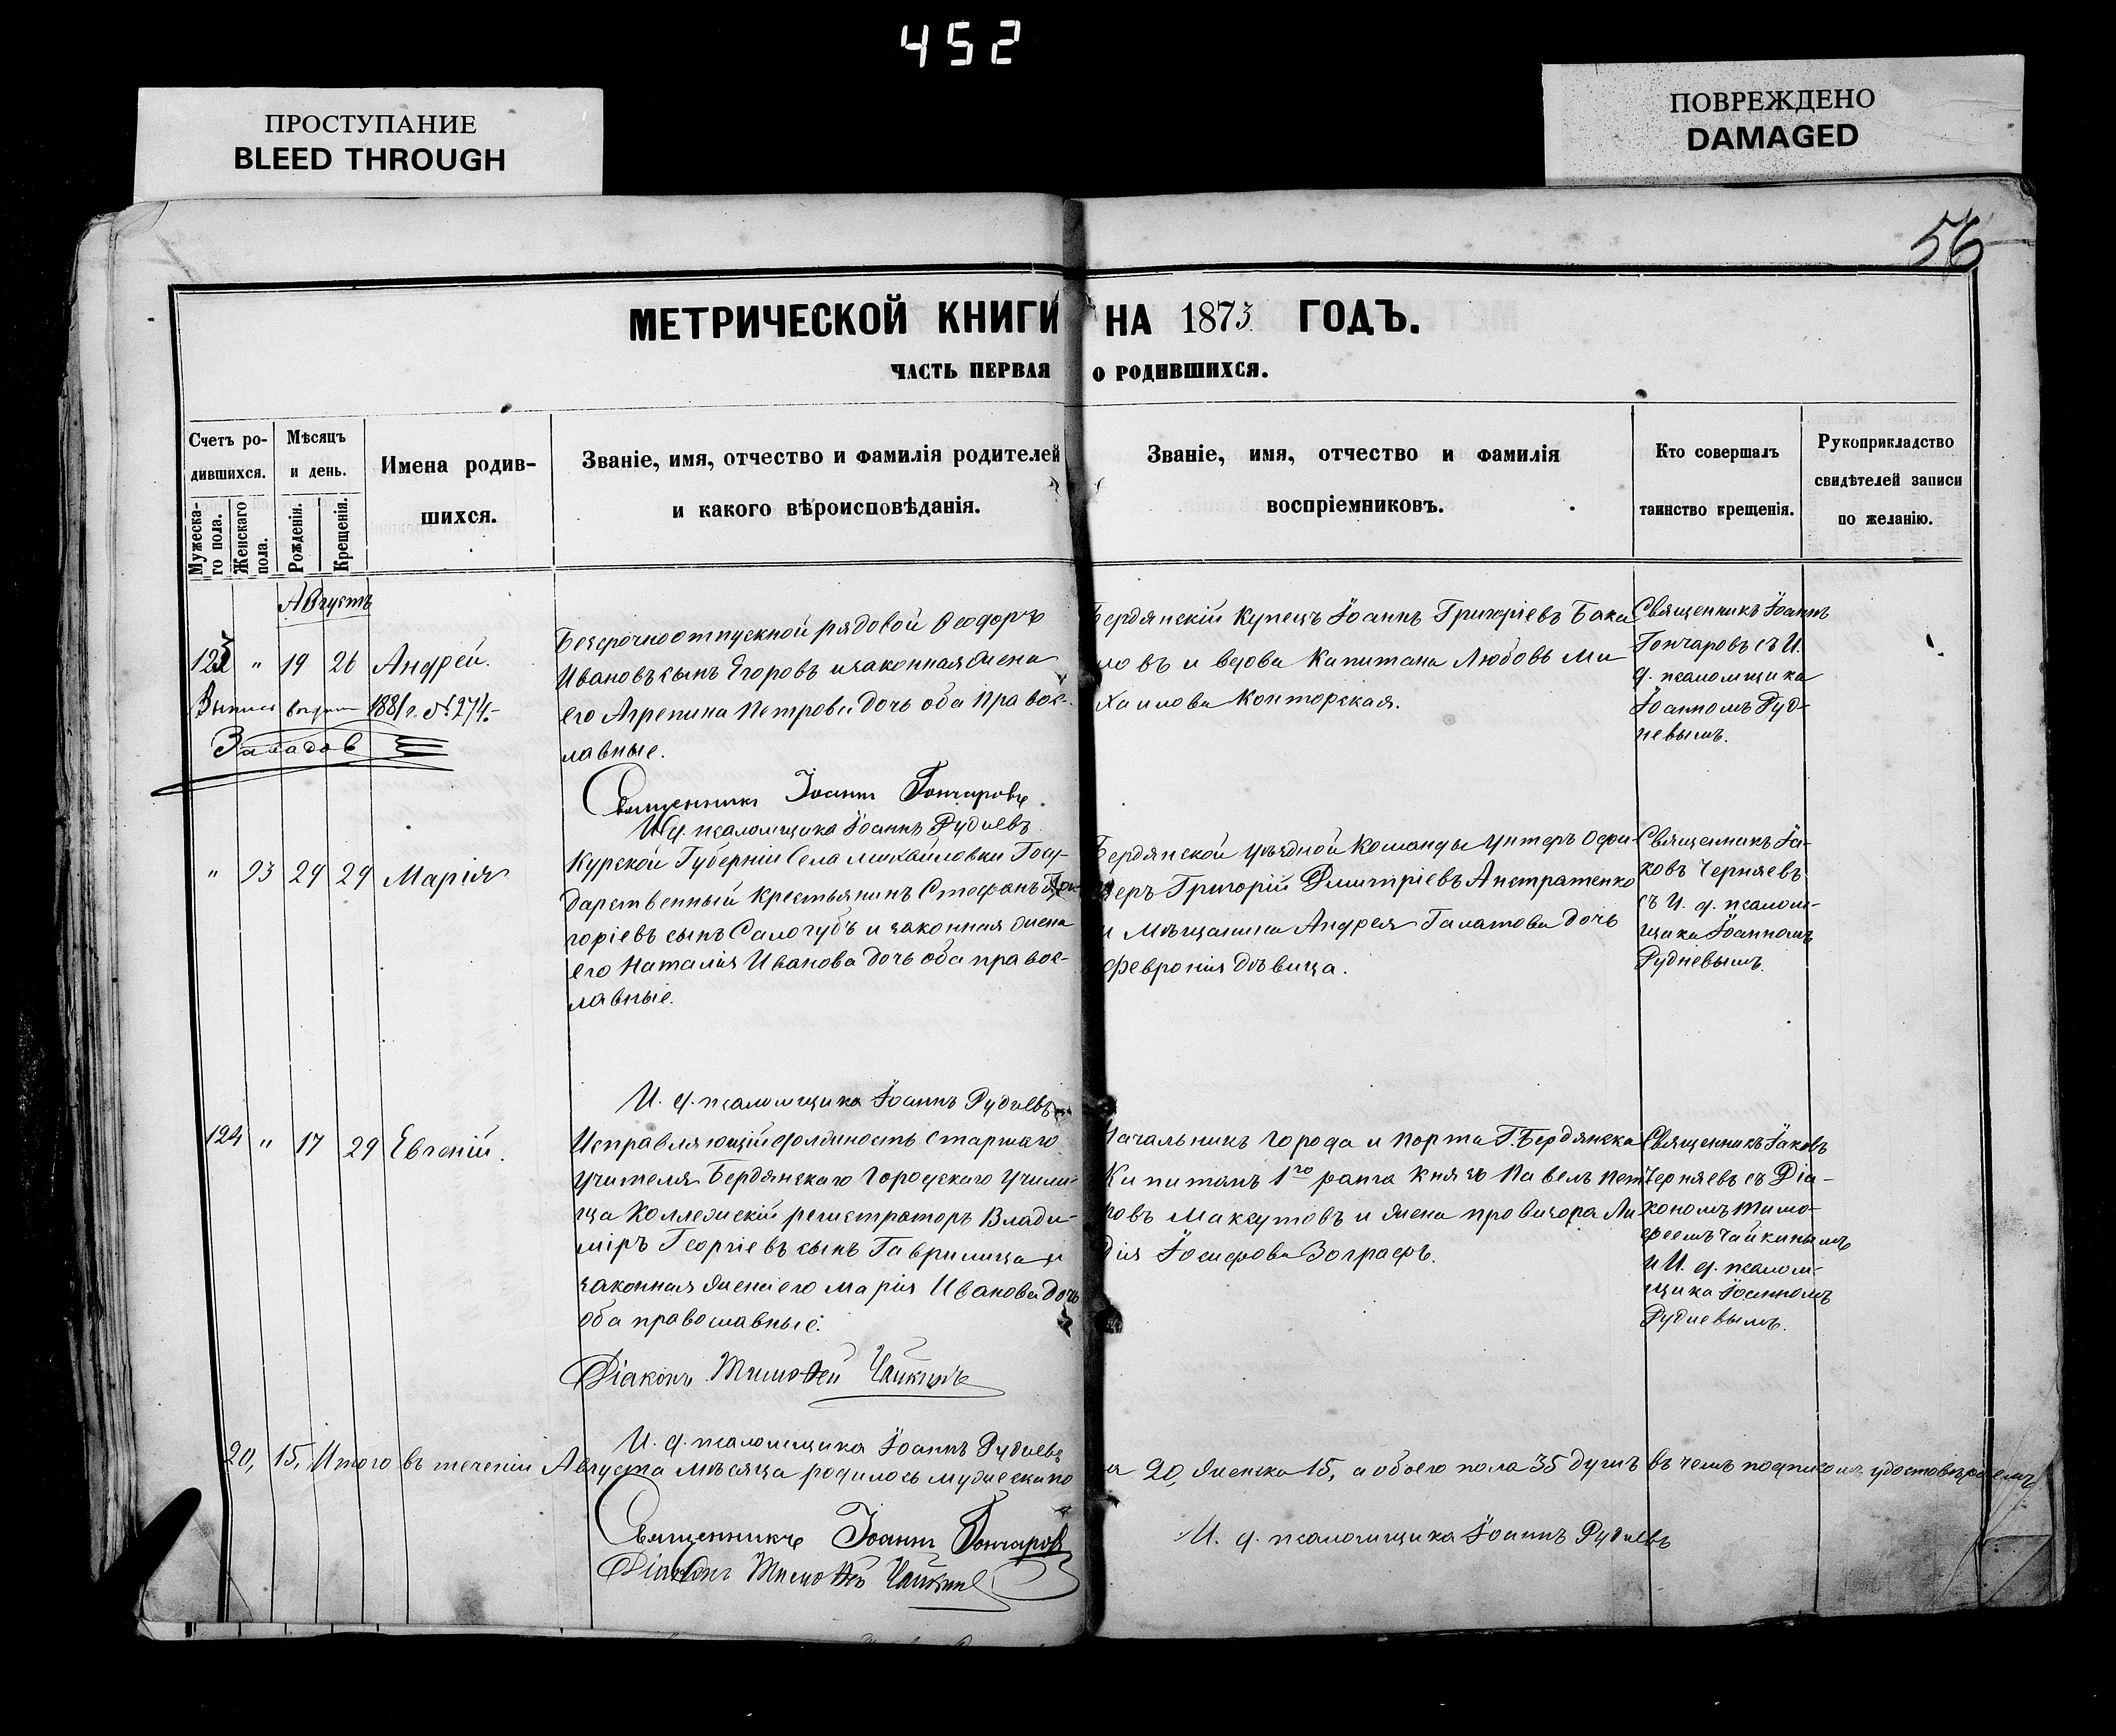 452
ПРОСТУПАНИЕ
BLEED THROUGH
ПОВРЕЖДЕНО
DAMAGED
56
МЕТРИЧЕСКОЙ КНИГИ НА 1873 ГОДЪ.
ЧАСТЬ ПЕРВАЯ О РОДИВШИХСЯ.
Счетъ ро-
дившихся.
Мужеска-
го пола.
Женскаго
пола.
Мѣсяцъ
и день.
Рожденія.
Крещенія.
Имена родив-
шихся.
Званіе, имя, отчество и фамилія родителей
и какого вѣроисповѣданія.
Званіе, имя, отчество и фамилія
воспріемниковъ.
Кто совершалъ
таинство крещенія.
Рукоприкладство
свидѣтелей записи
по желанію.
Августъ
123 " 19 26 Андрей.
Выпись выдана 1881 г. № 274.
Безсрочноотпускной рядовой Ѳеодоръ
Ивановъ сынъ Егоровъ и законная жена
его Агрепина Петрова дочь оба правос-
лавные.
Священникъ Іоаннъ Гончаровъ.
И. д. псаломщика Іоаннъ Рудневъ
Бердянскій Купецъ Іоаннъ Григоріевъ Бака
ловъ и вдова Капитана Любовь Ми
хаилова Конторская.
Священникъ Іоаннъ
Гончаровъ съ И.
д. псаломщика
Іоанномъ Руд-
невымъ.
" 93 29 29 Марія
Курской Губерніи Села Михайловки Госу-
дарственный Крестьянинъ Стефанъ
горіевъ сынъ Салогубъ и законная жена
его Наталія Иванова дочь оба правос-
лавные.
И. д. псаломщика Іоаннъ Рудневъ
Бердянской уѣздной Команды Унтеръ Офи-
церъ Григорій Дмитріевъ Анстратенко
и Мѣщанина Андрея Галатова дочь
Февронія дѣвица.
Священникъ Іа-
ковъ Черняевъ
съ И. д. псалом-
щика Іоанномъ
Рудневымъ.
124 " 17 29 Евгеній.
Исправляющій должность старшаго
учителя Бердянскаго Городскаго Учили-
ща Коллежскій регистраторъ Влади-
міръ Георгіевъ сынъ Гаврилица и
законная жена его Марія Иванова дочь
оба православные.
Діаконъ Тимоѳей Чайкинъ
И. д. псаломщика Іоаннъ Рудневъ
Начальникъ города и порта Г. Бердянска
Капитанъ 1го ранга Князь Павелъ Пет
ровъ Максутовъ и жена провизора Ли
дія Іосифова Зографъ.
Священникъ Іаковъ
Черняевъ съ Діа-
кономъ Тимо-
феемъ Чайкинымъ
и И. д. псалом-
щика Іоанномъ
Рудневымъ.
20, 15, Итого въ теченіи Августа мѣсяца родилось мужеска по ла 20, женска 15, а обоего пола 35 душъ въ чемъ подписомъ удостовѣряемъ
Священникъ Іоаннъ Гончаровъ
Діаконъ Тимоѳей Чайкинъ
И. д. псаломщика Іоаннъ Рудневъ